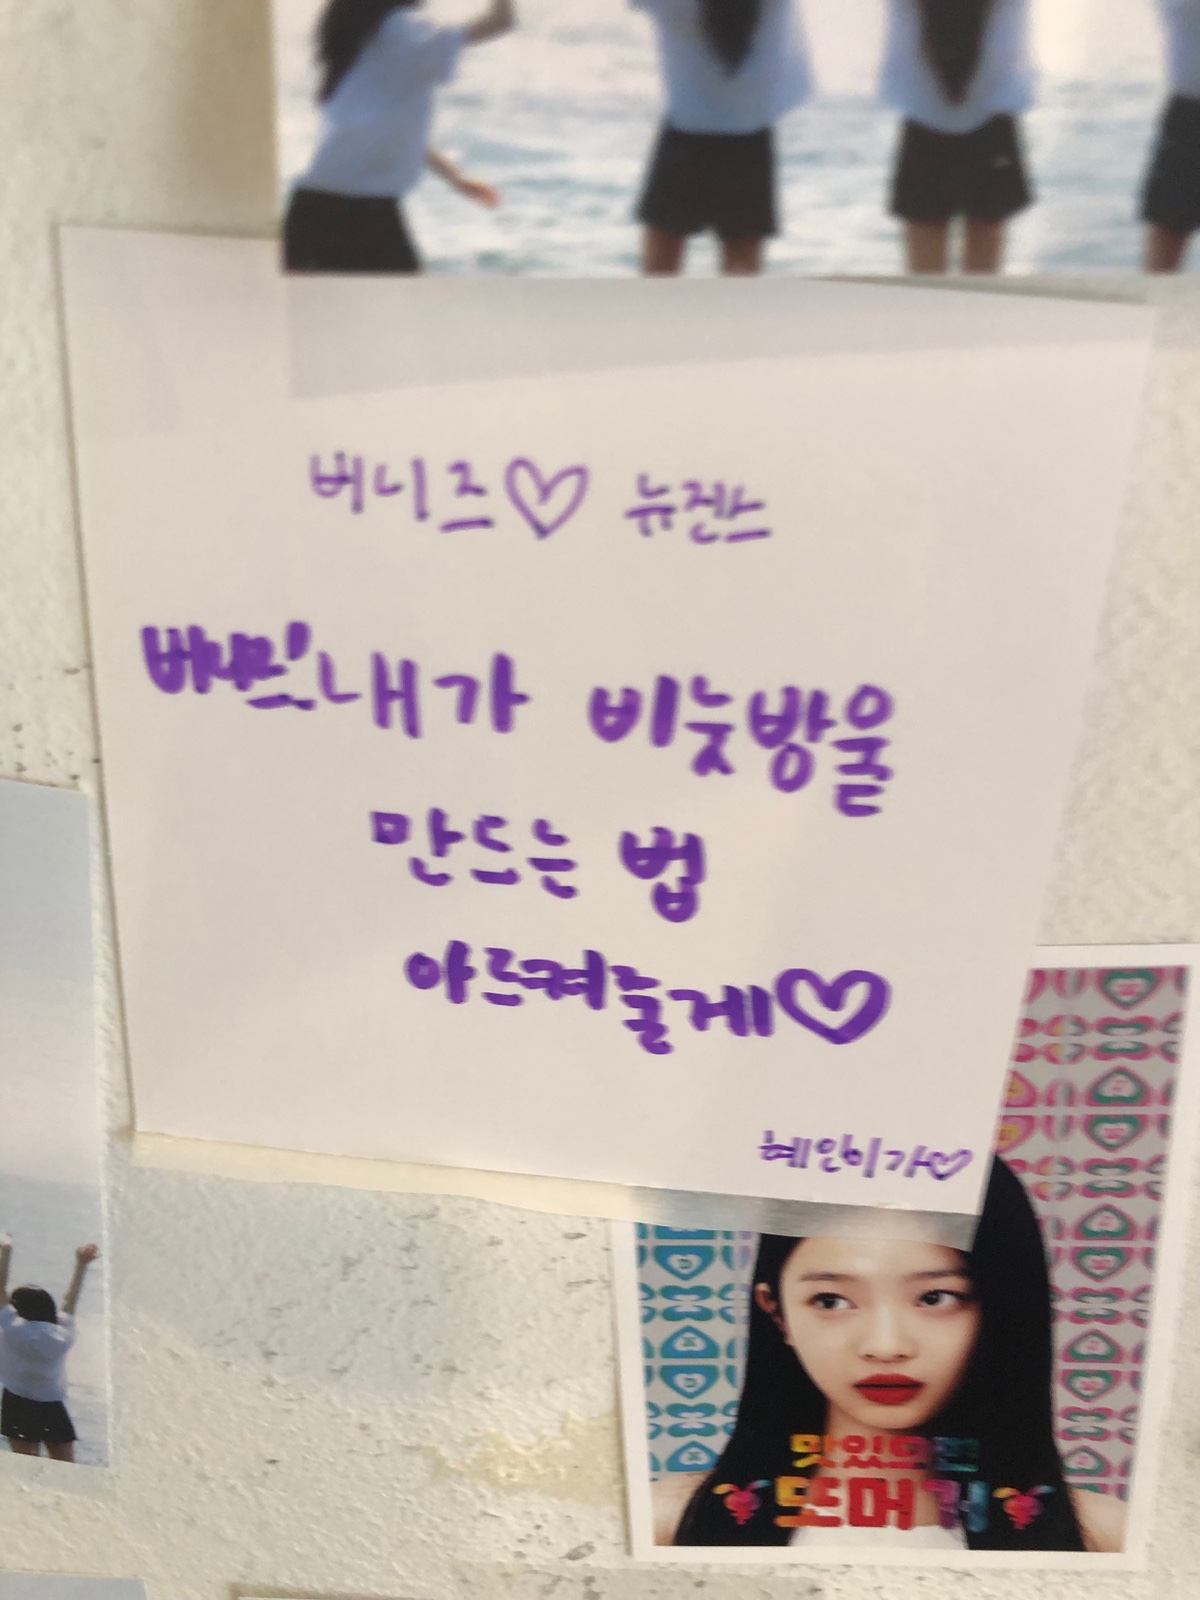 버니즈♡ 뉴진스
내가 비눗방울
만드는 법
아르켜줄게♡
혜인이가♡
맛있으면
또머거